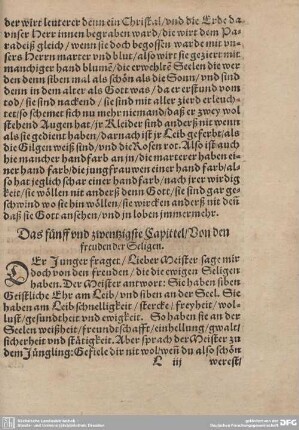 der wirt leuterer denn ein Christal/ vnd die Erde da
vnser Herr innen begraben ward/ die wirt dem Pa-
radeiß gleich/ wenn sie doch begossen warde mit vn-
sers Herrn marter vnd blut/ also wirt sie geziert mit
manchiger hand blumē/ die erwehltē Seelen die wer
den denn siben mal als schön als die Sonn/ vnd sind
denn in dem alter als Gott was/ da er erstund vom
tod/ sie sind nackend/ sie sind mit aller zierd erleuch-
tet/ so schemet sich nu mehr niemand/ daß er zwey wol
stehend Augen hat/ jr Kleider sind anderß nit wenn
als sie gedient haben/ darnach ist jr Leib geferbt/ als
die Gilgen weiß sind/ vnd die Rosen rot. Also ist auch
hie mancher hand farb an jn/ die marterer haben ei-
ner hand farb/ die jungfrauwen einer hand farb/ al-
so hat jeglich schar einer hand farb/ nach jrer wirdig
keit/ sie wöllen nit anderß denn Gott/ sie sind gar ge-
schwind wo sie hin wöllen/ sie wircken anderß nit deñ
daß sie Gott ansehen/ vnd jn loben jmmermehr.
Das fünff vnd zwentzigste Capittel/ Von den
freuden der Seligen.
DEr Junger fraget/ Lieber Meister sage mir
doch von den freuden/ die die ewigen Seligen
haben. Der Meister antwort: Sie haben siben
Geistliche Ehr am Leib/ vnd siben an der Seel. Sie
haben am Leib schnelligkeit/ stercke/ freyheit/ wol-
lust/ gesundtheit vnd ewigkeit. So haben sie an der
Seelen weißheit/ freundtschafft/ einhellung/ gwalt/
sicherheit vnd stätigkeit. Aber sprach der Meister zu
dem Jüngling: Gefiele dir nit wol/ weñ du also schön
L iij werest/